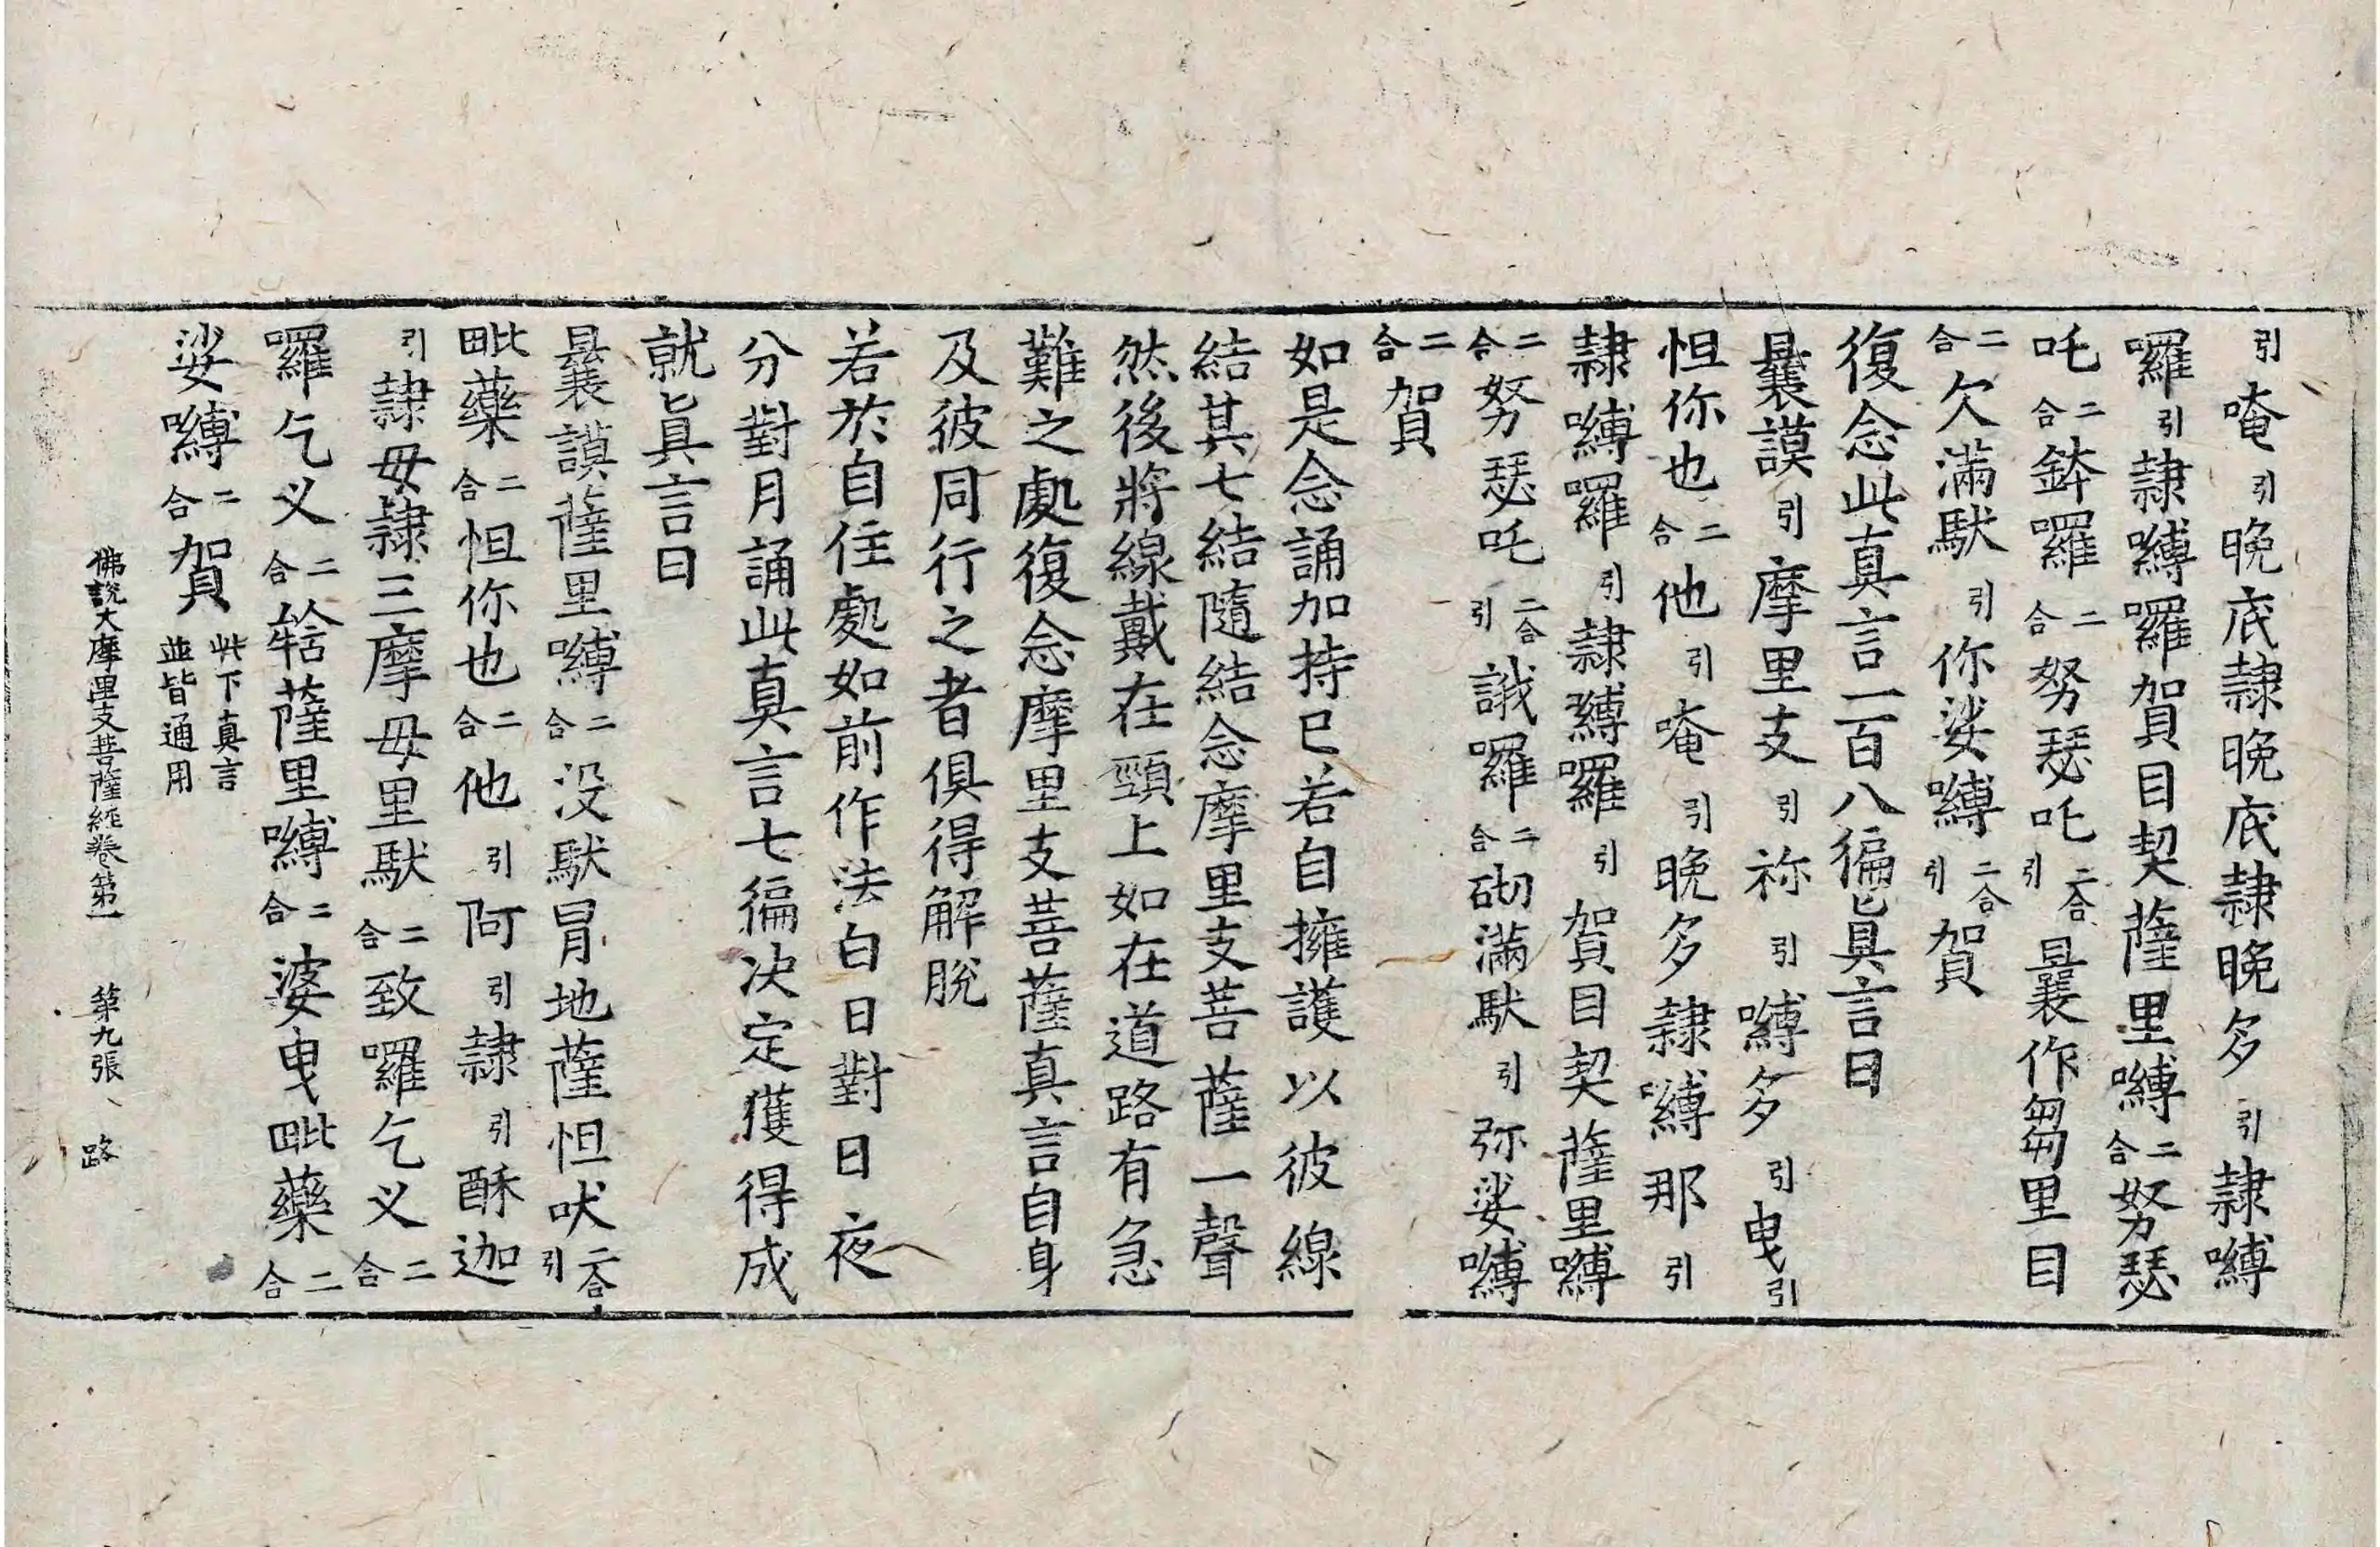 引唵引晚底隷晚底隷晚多引隷嚩
囉引隷嚩囉賀目契薩里嚩二合努瑟
吒二合鉢囉二合努瑟吒二合引曩作芻里目
二合欠滿馱引你娑嚩二合引賀
復念此真言一百八徧真言曰
曩謨引摩里支引祢引嚩多引曳引
怛你也二合他引唵引晚多隷嚩那引
隷嚩囉引隷嚩囉引賀目契薩里嚩
二合努瑟吒二合引誐囉二合砌滿馱引弥娑嚩
二合賀
如是念誦加持已若自擁護以彼線
結其七結隨結念摩里支菩薩一聲
然後將線戴在頸上如在道路有急
難之處復念摩里支菩薩真言自身
及彼同行之者俱得解脫
若於自住處如前作法白日對日夜
分對月誦此真言七徧决定獲得成
就真言曰
曩謨薩里嚩二合没馱冐地薩怛吠二合引
毗藥二合怛你也二合他引阿引隷引酥迦
引隷毋隷三摩毋里馱二合致囉乞义二合
囉乞义二合𤚥薩里嚩二合婆曳毗藥二合
娑嚩二合賀此下真言並皆通用
佛說大摩里支菩薩經卷第一 第九張 路